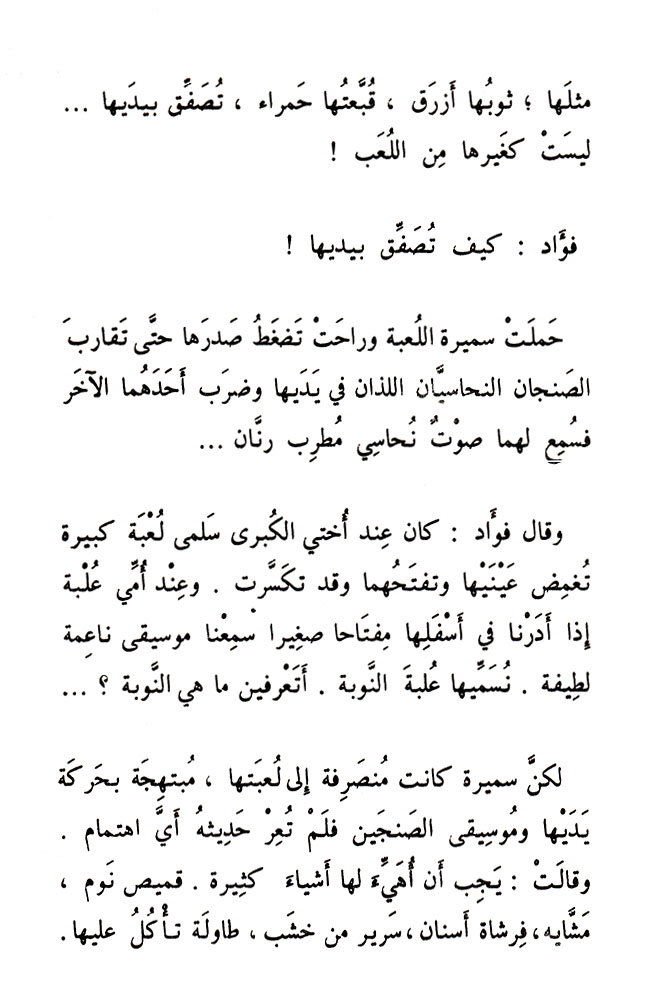 مثلَها ؛ ثوبُها أَزرَق ، قُبَّعتُها حَمراء ، تُصَفِّق بيدَيها ...
ليسَتْ كغَيرها مِن اللُعَب !
فؤَاد : كيف تُصَفِّق بيديها !
حَملَتْ سميرة اللُعبة وراحَتْ تَضغَطُ صَدرَها حتَّى تَقاربَ
الصَنجان النحاسيَّان اللذان في يَدَيها وضرَب أَحَدَهُما الآخَر
فسُمِع لهما صوْتٌ نُحاسِي مُطرِب رنَّان ...
وقال فوأَاد : كان عِند أُختي الكُبرى سَلمى لُعْبَة كبيرة
تُغمِض عَيْنَيْها وتفتَحُهما وقد تكَسَّرت . وعِنْد أُمِّي عُلْبة
إِذا أَدَرْنا في أَسْفَلِها مِفتَاحا صغِيرا سْمِعْنا موسيقى ناعِمة
لطِيفة . نُسَمِّيها عُلبةَ النَّوبة . أَتَعْرفين ما هي النَّوبة ؟ ...
لكنَّ سميرة كانت مُنصَرِفة إِلى لُعبَتها ، مُبتهِجَة بحَركَة
يَدَيْها ومُوسِيقى الصَنجَين فلَمْ تُعِرْ حَدِيثهُ أَيَّ اهتمام .
وقالَتْ : يَجِب أَن أُهَيِّءَ لها أَشياءَ كثِيرة . قميص نَوم ،
مَشَّايه، فِرشاة أَسنان، سَرير من خشَب ، طاولَة تأْكُلُ عليها.